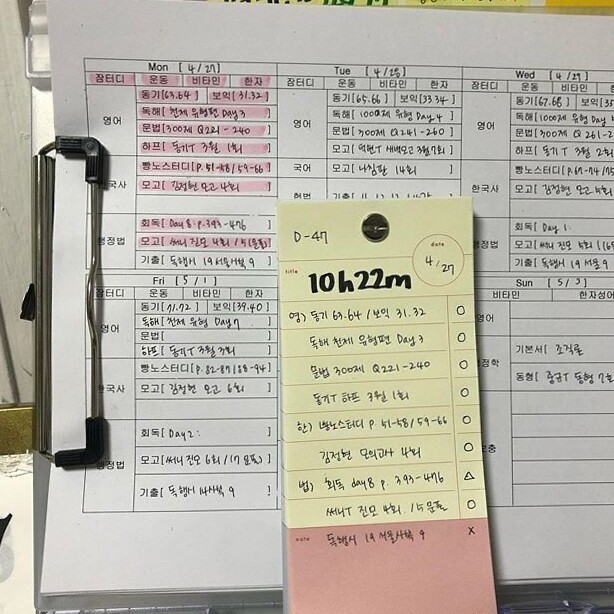 Mon [ 4/27 ]
장터디 운동 비타민 한자
영어
동기[63.64] 보익[31.32]
독해[천제 유형편 Day3]
문법[300제 Q221-240]
하프[동기T 3월 1회]
한국사
빵노스터디[p.51-58/59-66]
모고[김정현 모고 4회]
행정법
회독[Day8: p.393-476]
모고[써니 진모 4회/15문풀]
기출[독행시 19 서울사복 9]
Tue [ 4/28 ]
운동 비타민 한자
영어
동기[65.66] 보익[33.34]
독해[100Q제 유형 Day4]
문법[300제 Q241-260]
국어
모고[나침판 14회]
헌법
Wed [ 4/29 ]
장터디 운동 비타민
영어
동기[67.68]
문법[300제 Q261-2
하프[동기T 3월 2회
한국사
빵노스터디[p.67-74/75
모고[김정현 모고
행정법
회독[Day1:
모고[써니 진모
기출[독행시 19 서울 9
Fri [ 5/1 ]
장터디 운동 비타민 한자
영어
동기[71.72] 보익[39.40]
독해[천제 유형 Day7 ]
문법[ ]
하프[동기T 3월 3회]
한국사
빵노스터디[p.82-87/88-94]
모고[김정현 모고 6회]
행정법
회독[Day2: ]
모고[써니 진모 6회/17문풀]
기출[독행시 14사복 9 ]
Sun [ 5/3 ]
비타민 한자성어
기본서[조직론
행정학
동형[중규T 동형 7회
D-47
date
4/27
title
10h22m
영) 동기 63.64/보익 31.32 O
독해 천제 유형편 Day3 O
문법 300제 Q221-240 O
동기T 하프 3월 1회 O
한) 빵노스터디 p.51-58/59-66 O
김정현 모의고사 4회 O
법) 회독 day8 p.393-476 △
써니T 진모 4회. 15문풀 O
note 독행시 19 서울사복 9 X